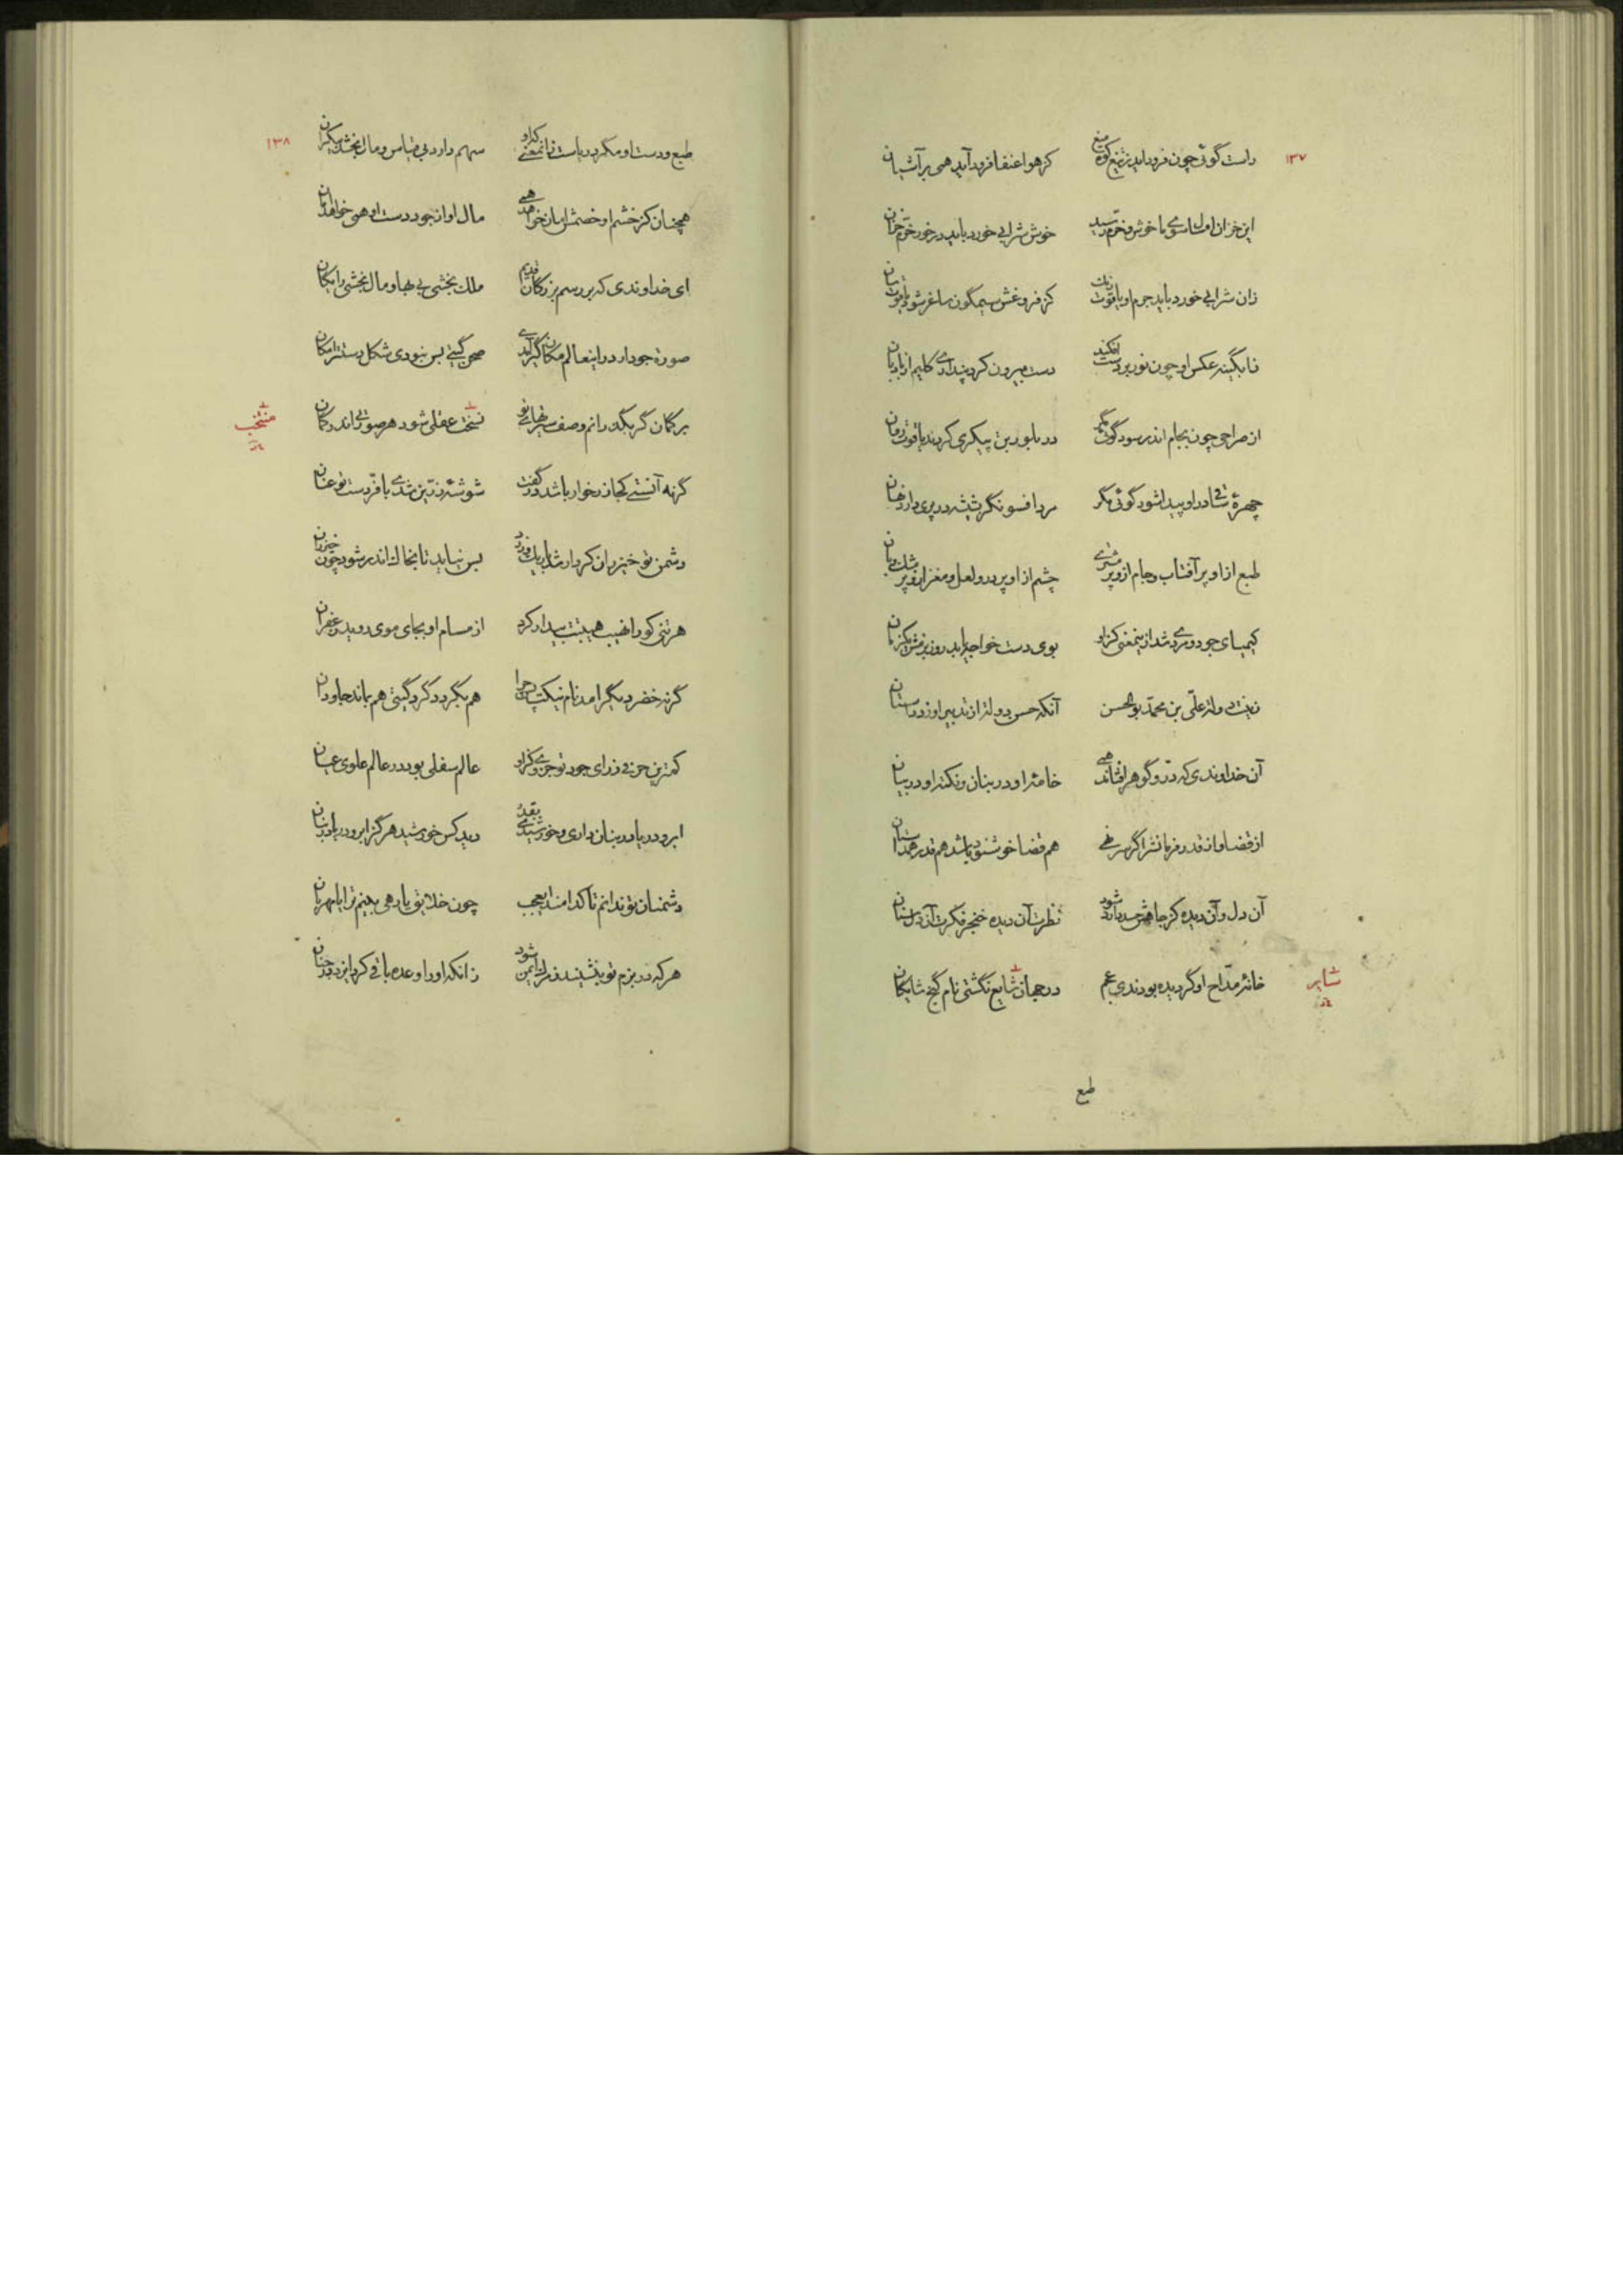 ۱۳۷
راست گوئی چون فرود آید ز تیغ کوه میغ کز هوا عنقا فرود آید همی بر آشیان
این خزان امسال سوی ما خوش و خرّم رسید خوش شرابی خورد باید در خور خرّم خزان
زان شرابی خورد باید جرم او یاقوت رنگ کز فروغش سیمگون ساغر شود یاقوت سان
ز آبگینه عکس او چون نور بر دست افکند دست بیرون کرد پنداری کلیم از بادبان
از صراحی چون بجام اندر سود گوئی مگر در بلورین پیکری کردند یاقوت روان
چهرهٔ ساقی در او پیدا شود گوئی مگر مرد افسونگر بشیشه در پری دارد نهان
طبع از او پر آفتاب و جام از او پر مشتری چشم از او پر در و لعل و مغز از او پر مشک و بان
کیمیای جود و مردی شد از این معنی کز او بوی دست خواجه آید روز بزمش هر زمان
زینت دولة علّی بن محمّد بوالحسن آنکه حسن دولة از تدبیر او زد داستان
آن خداوندی که درّ و گوهر افشاند همی خامهٔ او در بنان و نکته او در بیان
از قضا و از قدر فرمانش اگر برتر نهی هم قضا خوشنود باشد هم قدر همداستان
آن دل و آن دیده کز جاهش حسد یابد شود نظرت آن دیده خنجر فکرت آن دل سنان
خانهٔ مدّاح او گر دیده بودندی عجم در جهان شایع نگشتی نام گنج شایگان
شایر
طبع
۱۳۸
طبع و دست او مگر دریاست زانمعنی کز او سهم دارد بی قیاس و مال بخشد بیکران
همچنان کز خشم او خصمش امان خواهد همی مال او از جود دست او همی خواهد امان
ای خداوندی که بر رسم بزرگان قدیم ملک بخشی بی بها و مال بخشی رایگان
صورة جود ار در این عالم مکان گیر آمدی صحن گیتی بس نبودی شکل دستت را مکان
بر گمان گر بگذرانم وصف سیرتهای تو نسخت عقلی شود هر صورتی اندر گمان
منتخب
گر نه آنستی کجا زر خوار باشد در گفت شوشهٔ زرّین شدی با فرّ دست تو عنان
دشمن تو خیزران کردار شد باریک و زرد بس نیاید تا بخاک اندر شود چون خیزران
هر تنی کو را نهیب هیبتت بیدار کرد از مسام او بجای موی روید زعفران
گر نه خضر دیگر آمد نام نیکت پس چرا هم بگردد گرد گیتی هم بماند جاودان
کمترین جزئی ز رای جود تو جزوی کز او عالم سفلی بود در عالم علوی عیان
ابر و دریا در بنان داری و خورشیدی بقدر دید کس خورشید هرگز ابر و دریا در بنان
دشمنان تو ندانم تا کدامند ای عجب چون خلایق را همی بینم ترا با مهربان
هر که در بزم تو بنشیند ز مرگ ایمن شود زانکه او را وعده باقی کرد ایزد در جنان